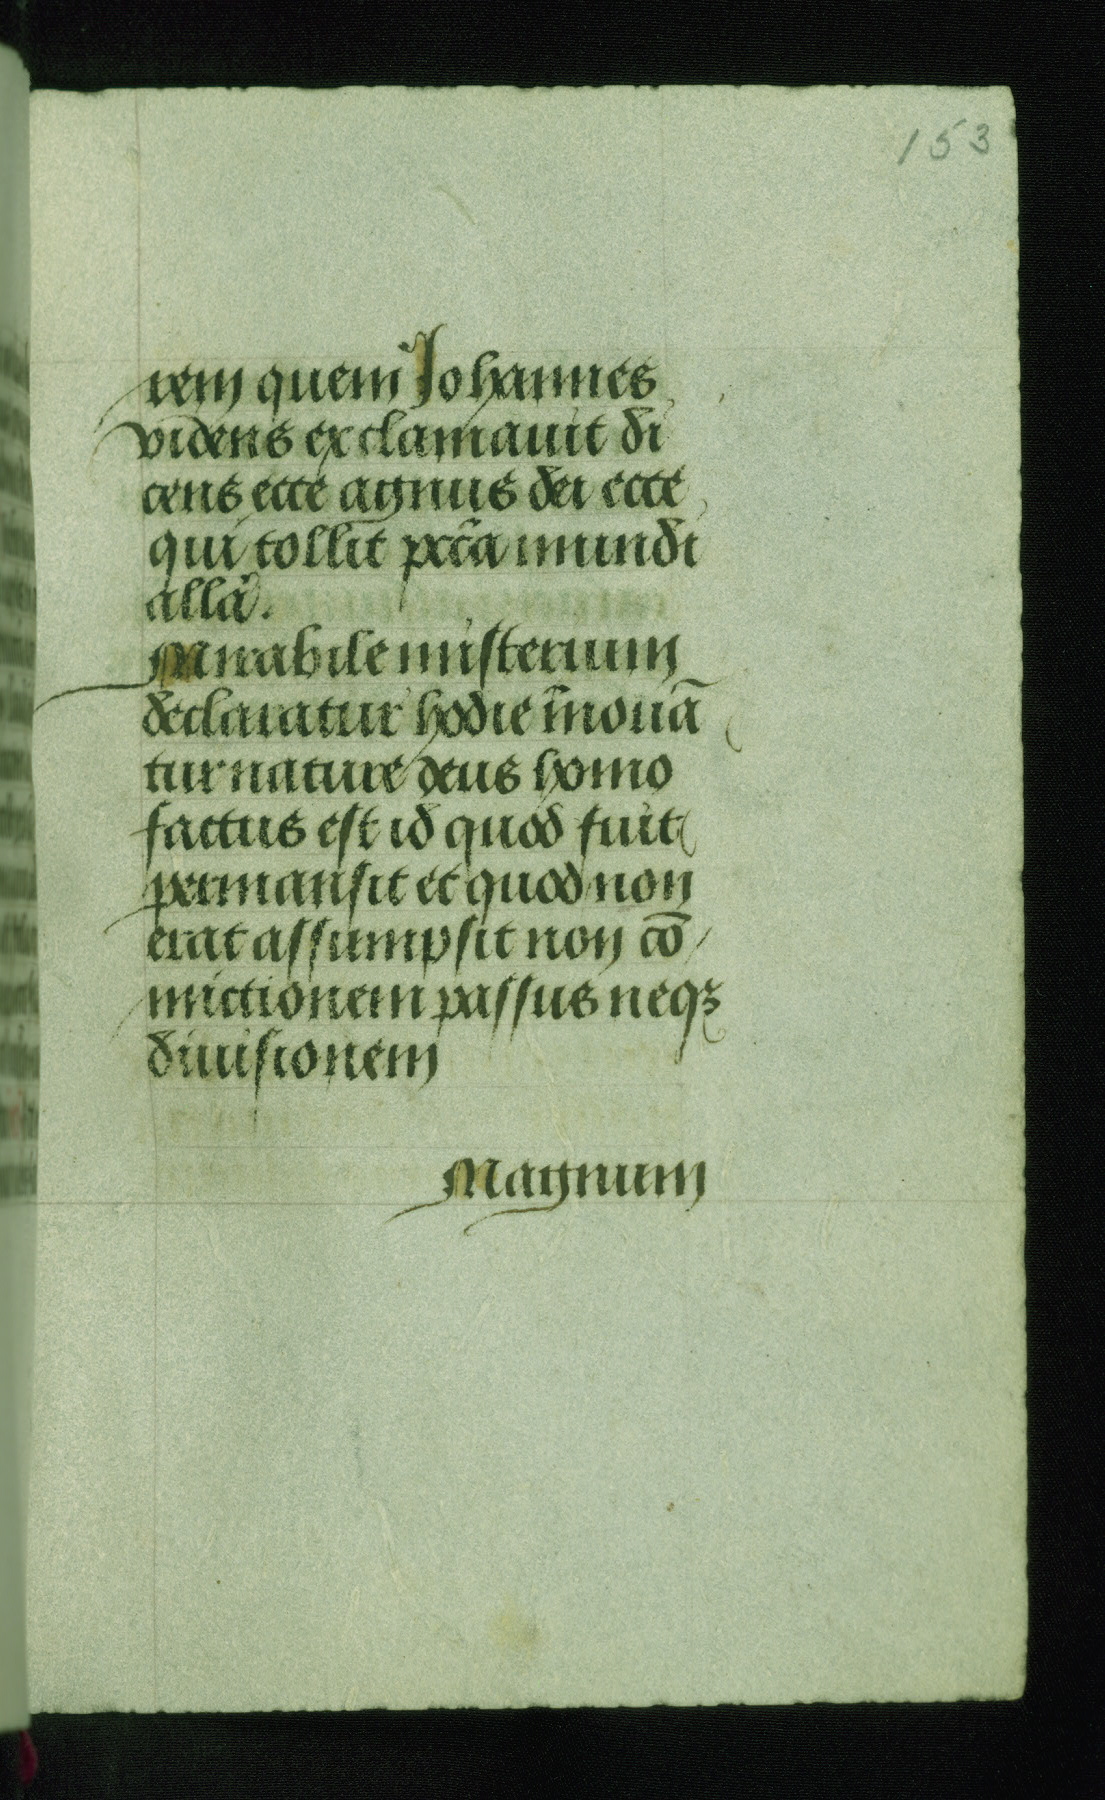 153
rem quem Johannes
videns exclamavit di
cens ecce agnus dei ecce
qui tollit pctā mundi
allā.
Mirabile misterium
declaratur hodie īnouā
tur nature deus homo
factus est id quod fuit
permansit et quod non
erat assumpsit non cō
mictionem passus neqꝫ
diuisionem
Magnum